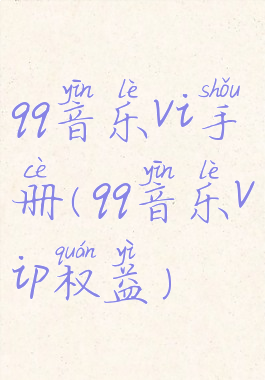 yīn lè shǒu
qq音乐vi手
cè yīn lè
册(qq音乐v
quán yì
ip权益)